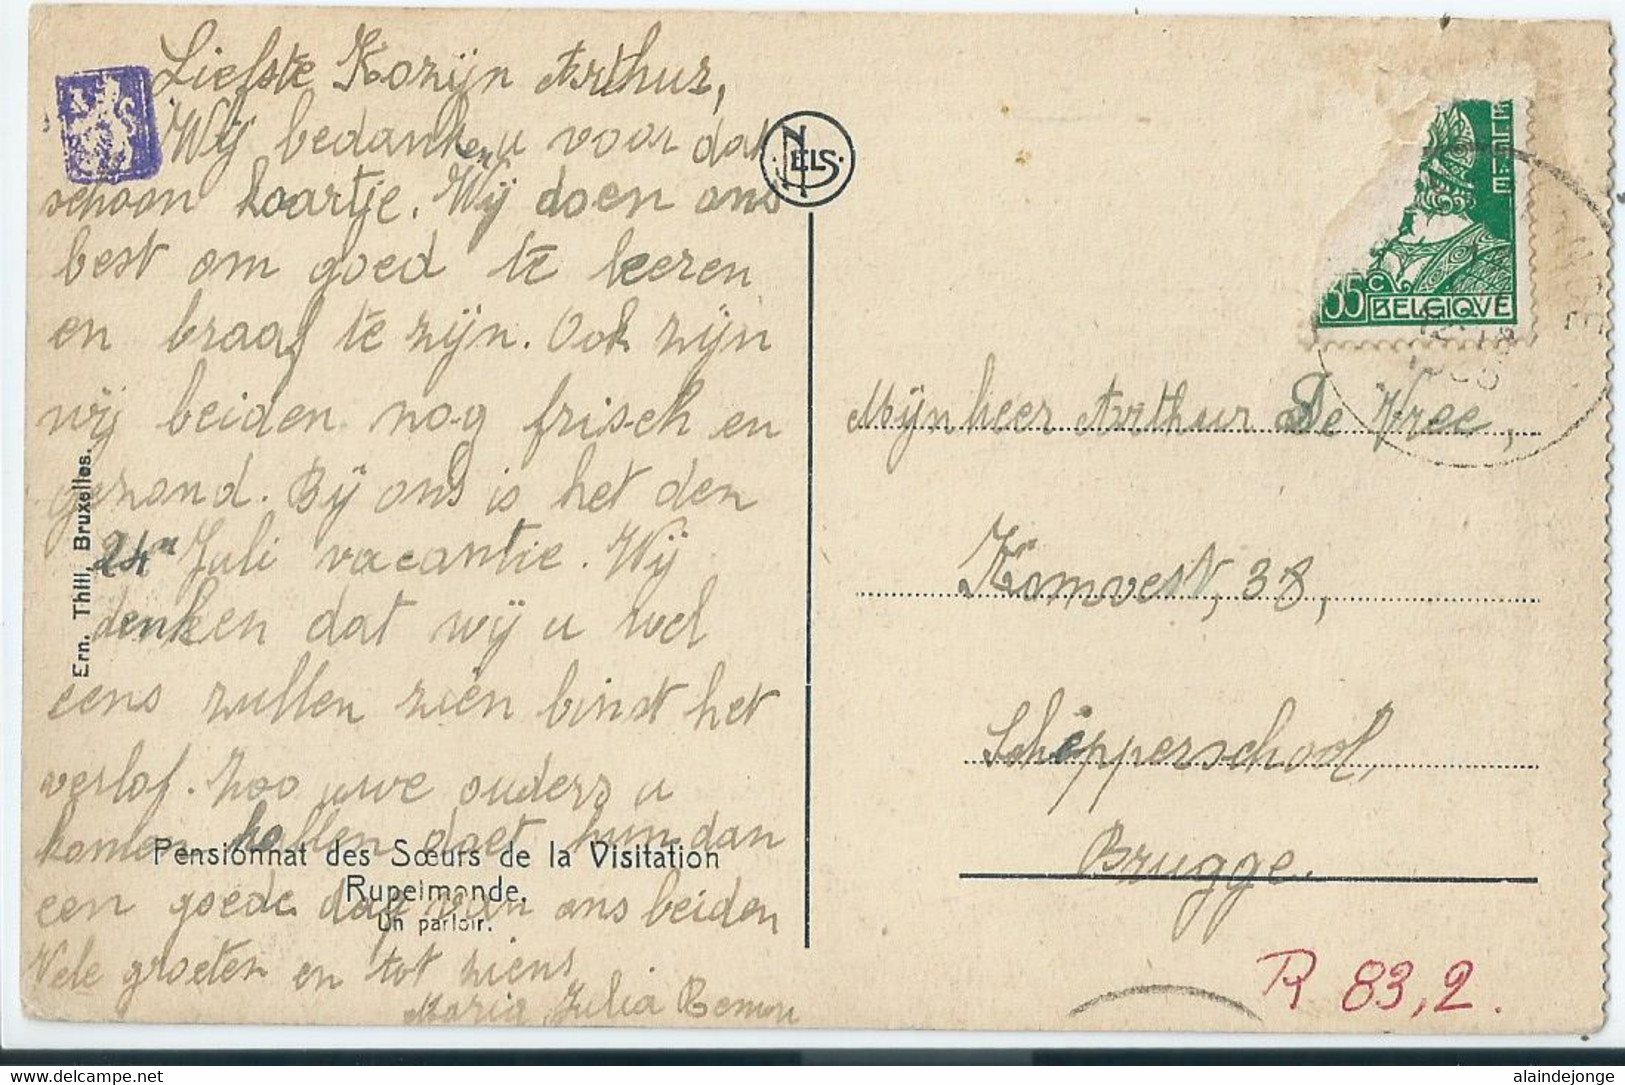 Liefste Kozijn Arthur,
Wij bedanken u voor dat
schoon kaartje. Wij doen ons
best om goed te leeren
en braaf te zijn. Ook zijn
wij beiden nog frisch en
gezond. Bij ons is het den
24en Juli vacantie. Wij
denken dat wij u wel
eens zullen ziën binst het
verlof. Zoo uwe ouders u
komen hallen doet hun dan
een goede dag van ons beiden
Vele groeten en tot ziens
Maria Julia
Ern. Thill, Bruxelles.
Pensionnat des Sœurs de la Visitation
Rupelmonde.
Un parloir.
NELS
35c BELGIQUE
Mijnheer Arthur De Vree,
Komvest, 38,
Schipperschool,
Brugge.
R 83,2.
alaindejonge
https://www.delcampe.net